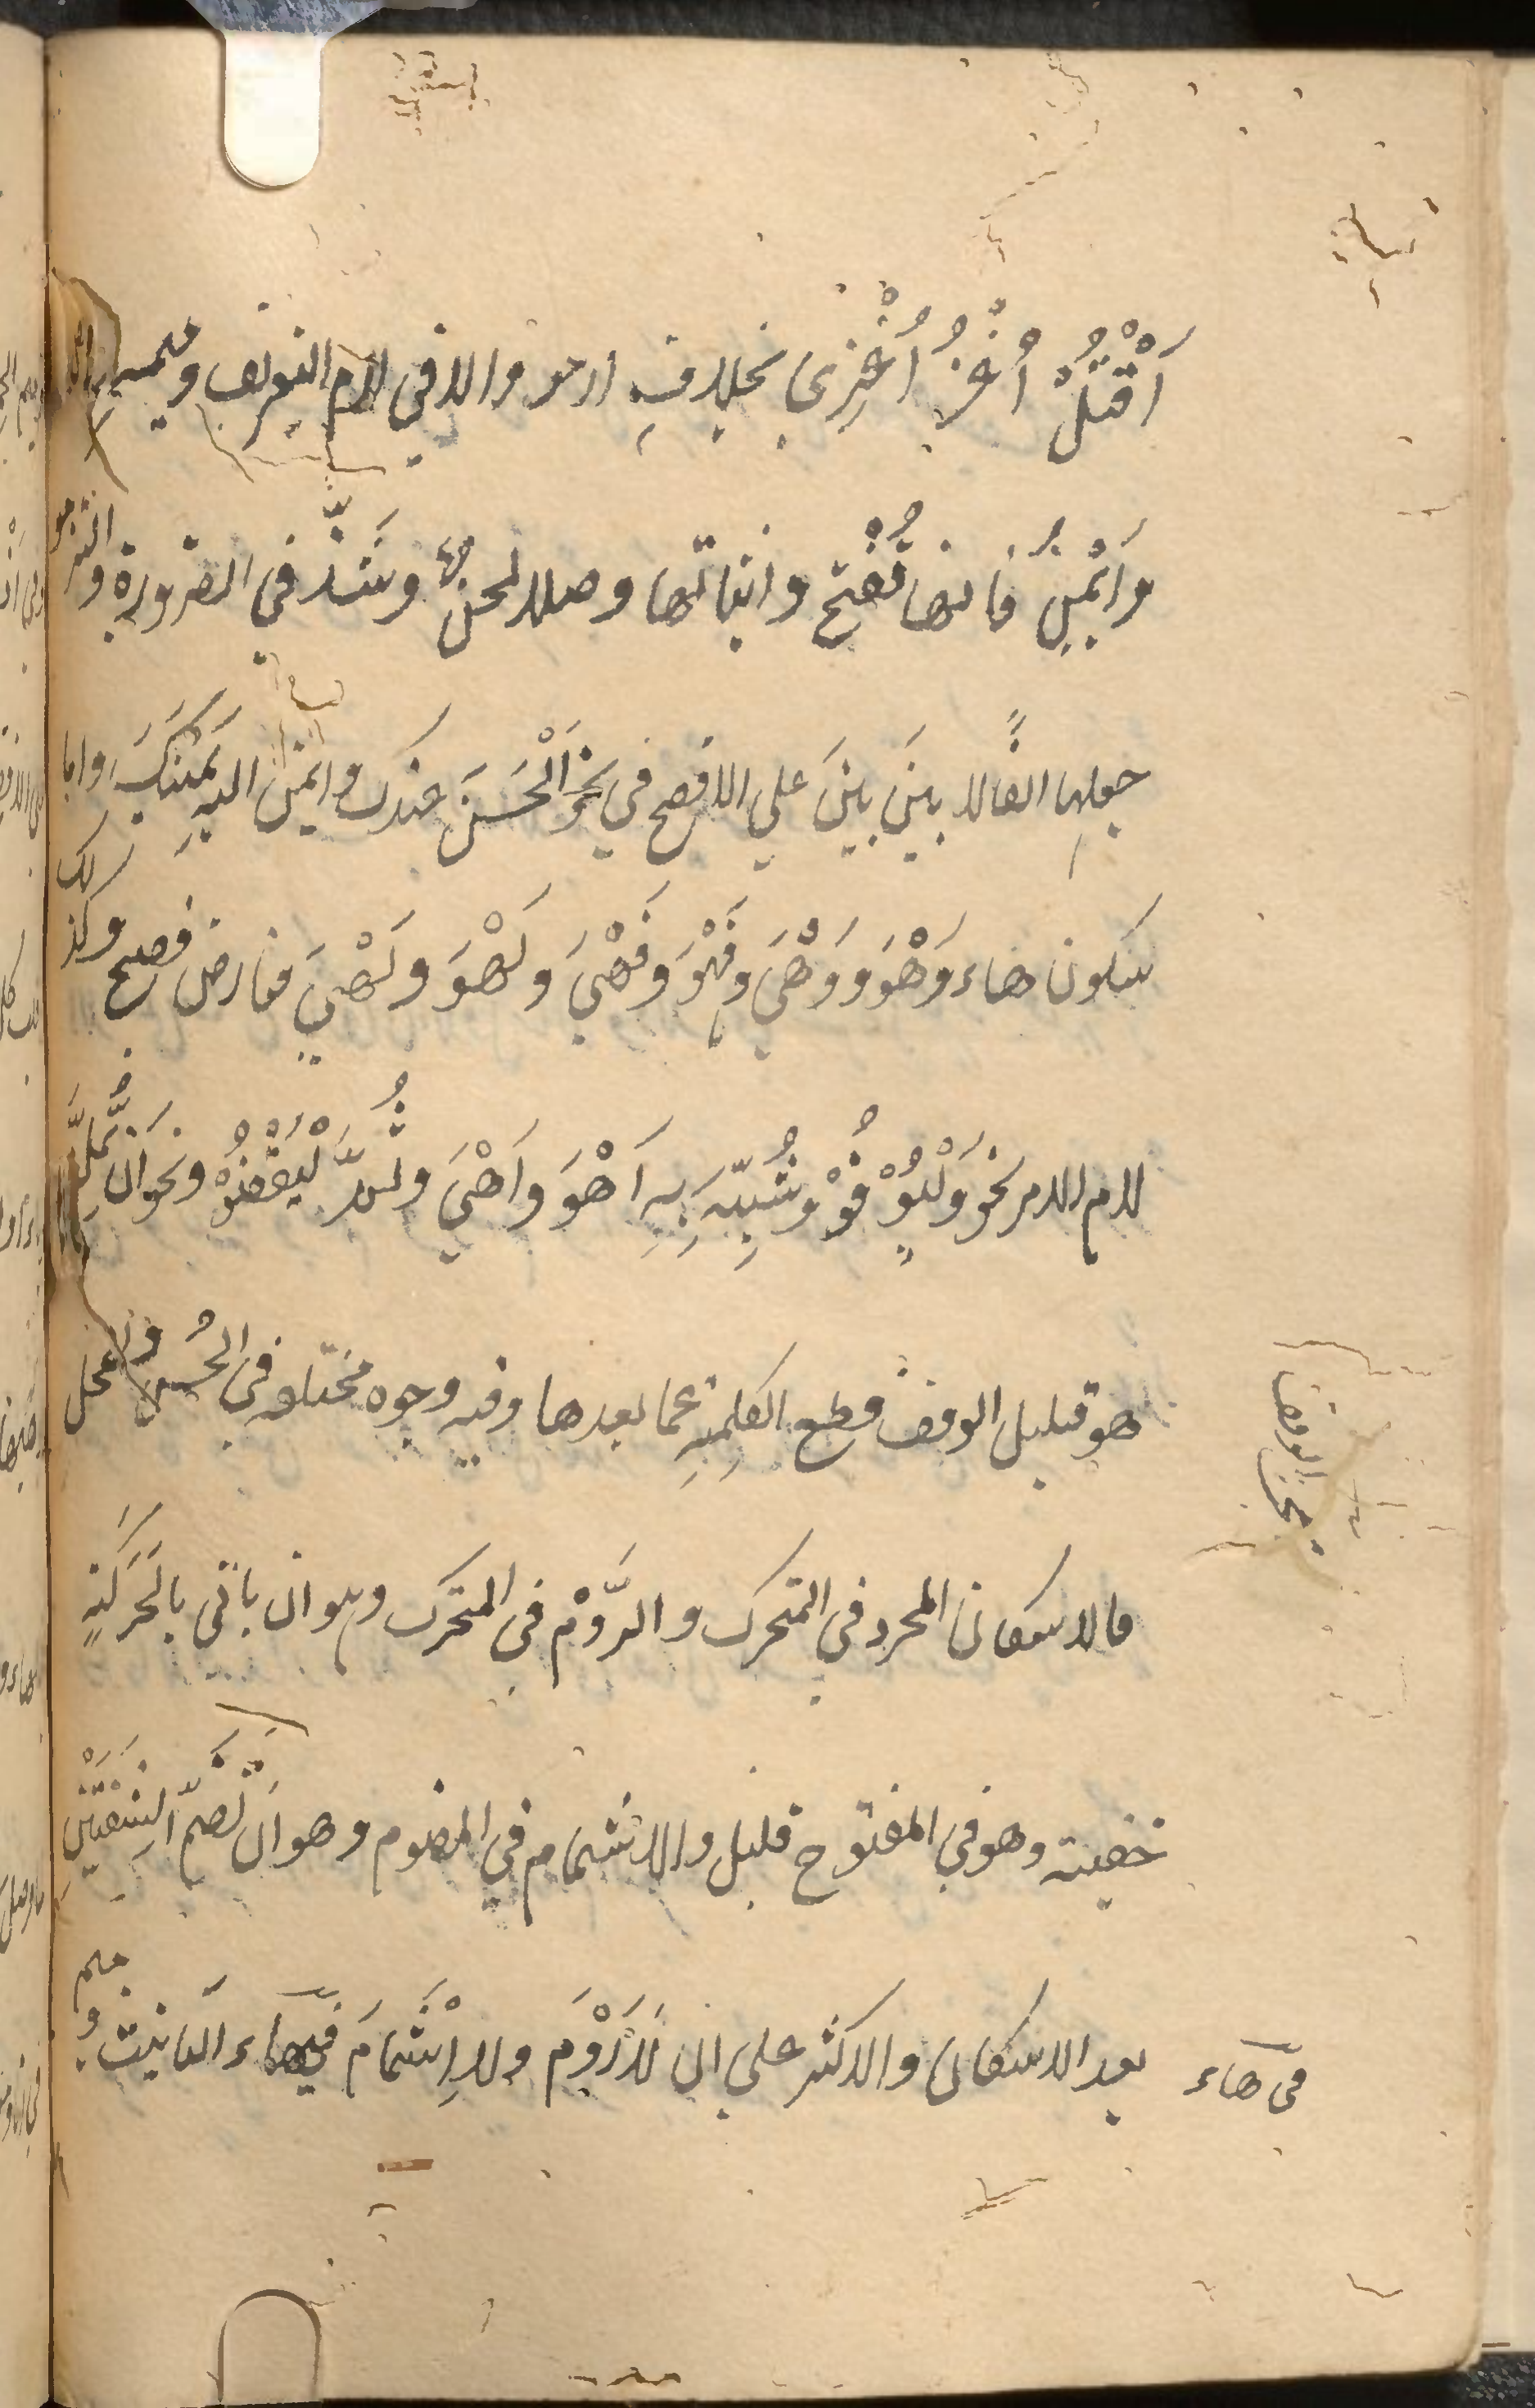 اُقْتُلْ اُغْزُ اُغْزِىْ بخلافِ ارموا والا في لام التعريف وميمه
وَايْمُنِ فانها تُفتح واثباتها وصلا لحنٌ وشَذَّ في الضرورة والتزموا
جعلها الفًا لا بينَ بينَ علي الافصح في نحو آلْحَسَنُ عندك وايمُن اللهِ يَمِينُكَ واما
سكون هاء وَهْوَ ووَهْيَ وفَهْوَ وفَهْيَ ولَهْوَ ولَهْيَ فعارض فصيح وكذلك
لام الامر نحو وَلْيُوْفُوْ وشُبِّهَ بِهِ اَهْوَ واَهْيَ وثُمَّ لْيَقْضُوْ ونحو اَنْ يُّمِلَّ
هو قليل الوقف قطع الكلمةِ عما بعدها وفيه وجوه مختلفه في الحُسن والمحل
فالاسكان المجرد في المتحرك والرَّوْم في المتحرك وهو ان ياتى بالحَرَكَةِ
خفيته وهو في المفتوح قليل والاشمام في المضموم وهو ان تَضمَّ الشفَتَيْنِ
بعد الاسكان والاكثر علي ان لا رَوْمَ ولا اِشْمَامَ في هاء التانيث و ميم
بحث الوقف
فى هاء